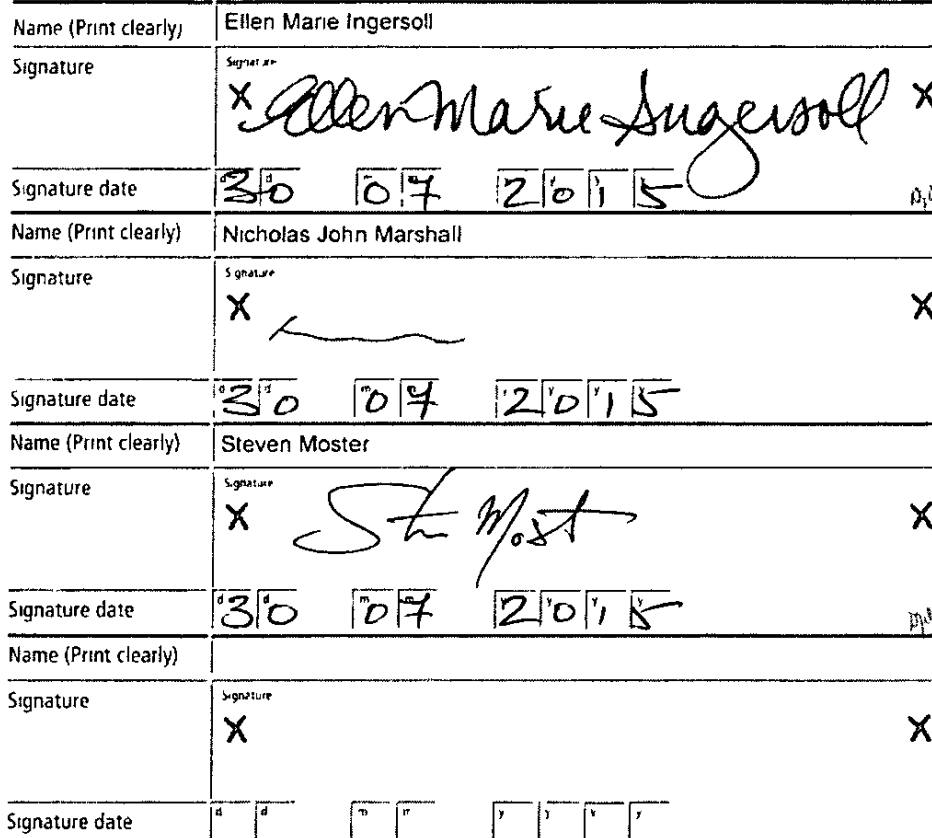 Name (Print clearly) Ellen Marie Ingersoll
Signature Signature
X Ellen Marie Ingersoll X
Signature date d d 30 m m 07 y y y y 2015
Name (Print clearly) Nicholas John Marshall
Signature Signature
X X
Signature date d d 30 m m 07 y y y y 2015
Name (Print clearly) Steven Moster
Signature Signature
X Ste Most X
Signature date d d 30 m m 07 y y y y 2015
Name (Print clearly)
Signature Signature
X X
Signature date d d m m y y y y